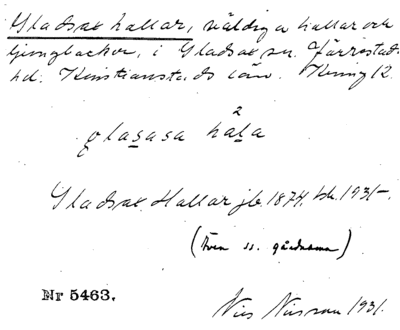 Gladsax hallar, väldiga hallar och
ljungbackar, i Gladsax sn. Järrestads
hd. Kristianstads län. Kining 12.
glasasa håla
Gladsax Hallar jb. 1874, tk. 1931-.
(Även ss. gårdnamn)
Nr 5463.
Nils Nilsson 1931.